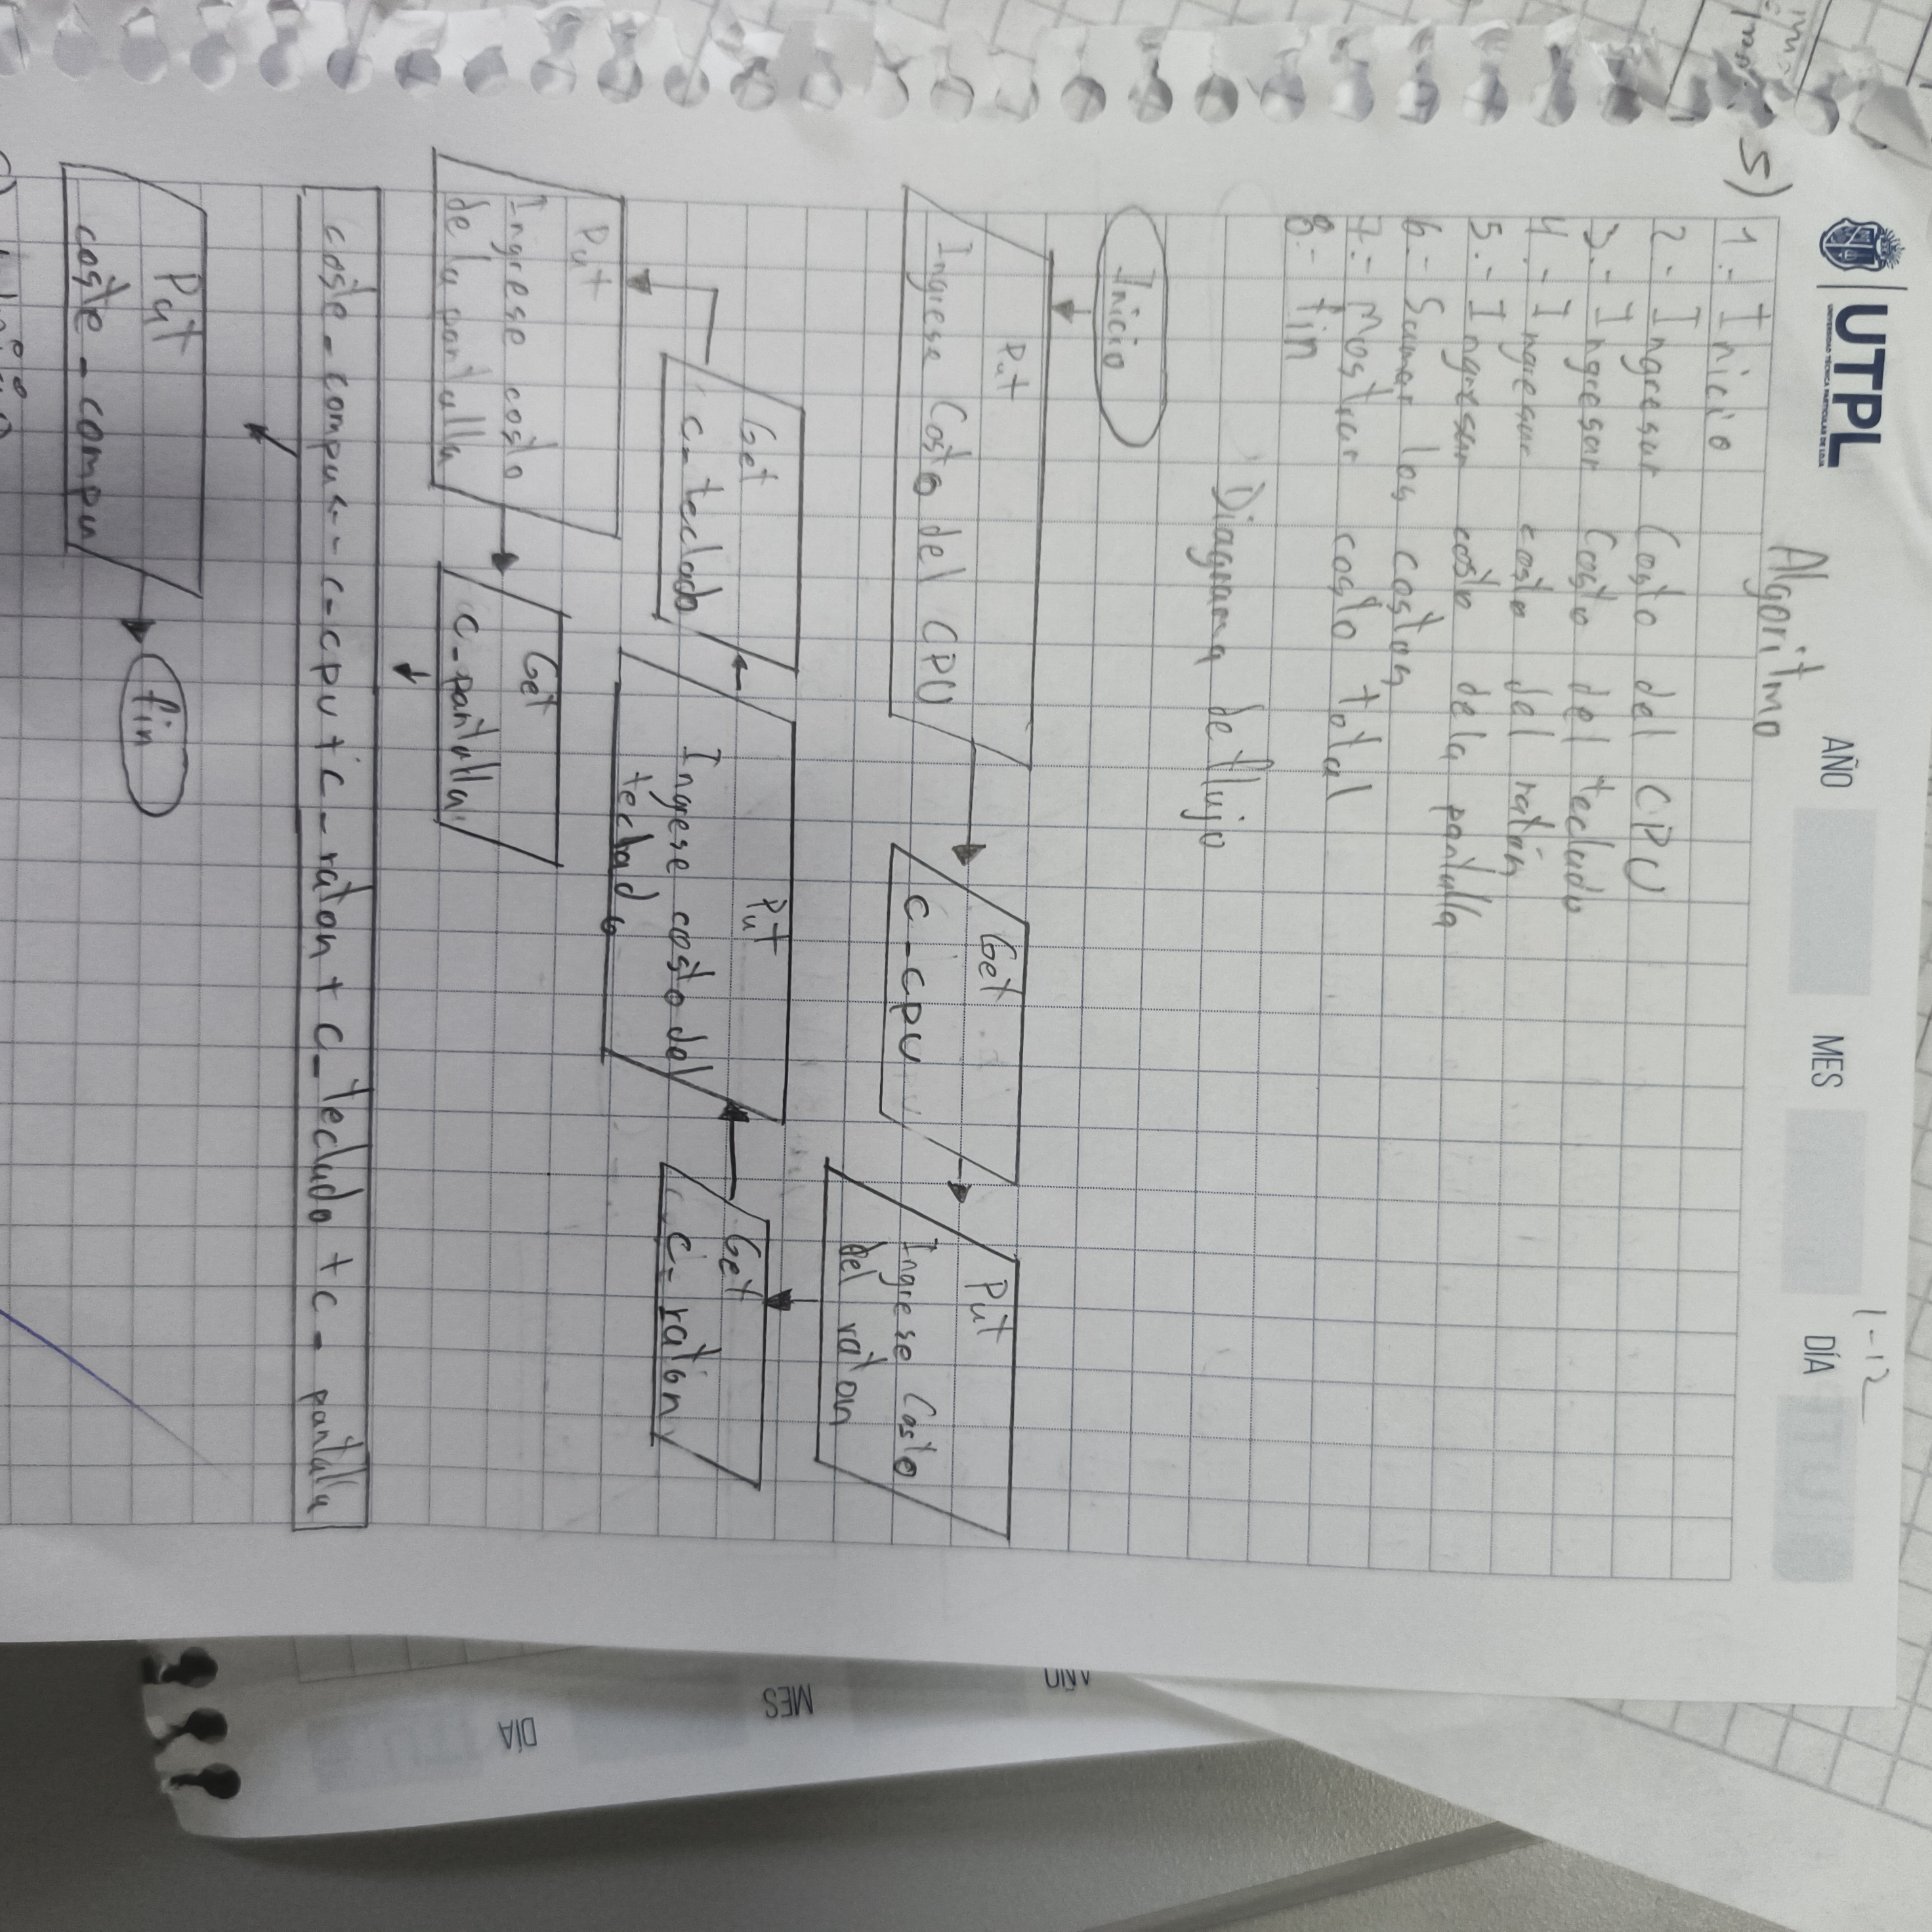 UTPL
UNIVERSIDAD TÉCNICA PARTICULAR DE LOJA
AÑO MES DÍA
1-12
5)
Algoritmo
1.- Inicio
2.- Ingresar Costo del CPU
3.- Ingresar Costo del teclado
4.- Ingresar costo del ratón
5.- Ingresar costo de la pantalla
6.- Sumar los costos
7.- Mostrar costo total
8.- fin
Diagrama de flujo
Inicio
Put
Ingrese Costo del CPU
Get
c_cpu
Put
Ingrese Costo
del raton
Get
c_ratón
Put
Ingrese costo del
teclado
Get
c_teclado
Put
Ingrese costo
de la pantalla
Get
c_pantalla
coste_compu <-- c_cpu + c_raton + c_teclado + c_pantalla
Put
coste_compu
fin
AÑO
MES
DÍA